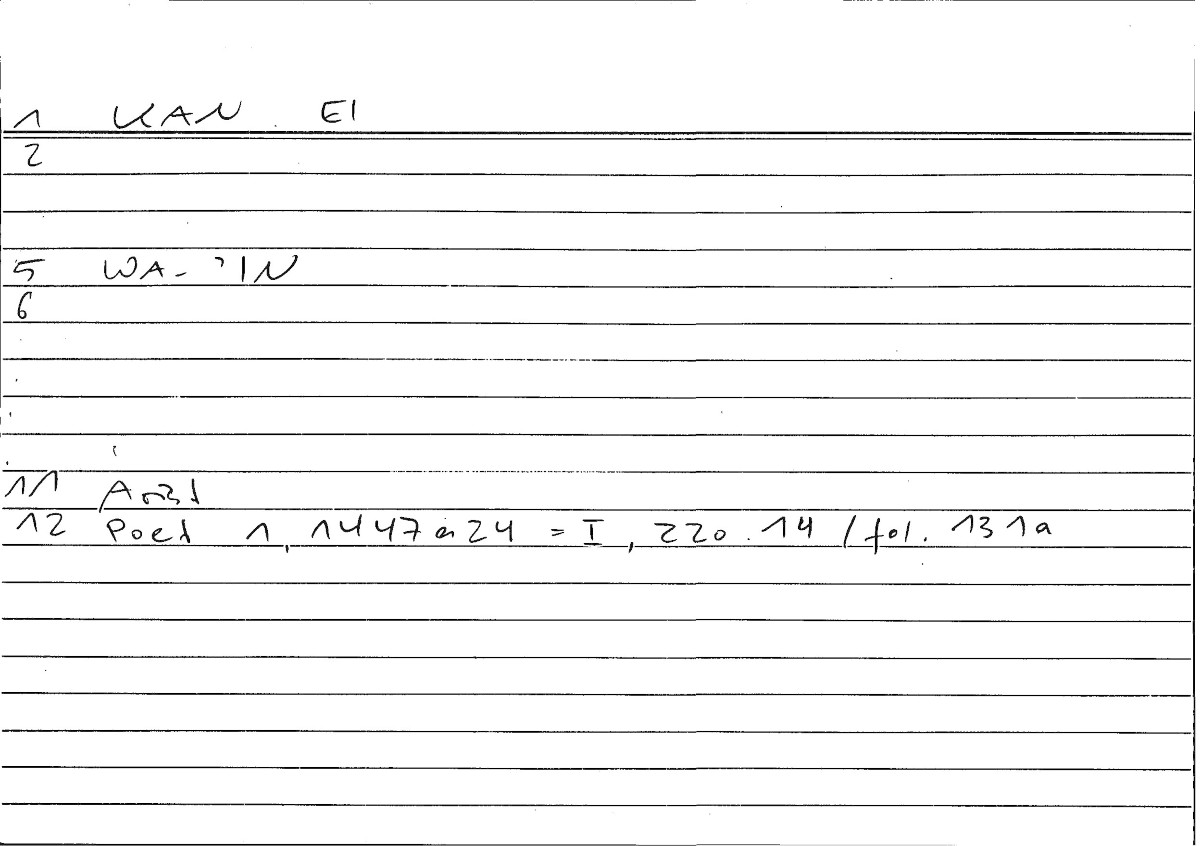 1 KAN EI
2
5 WA- ʾIN
6
11
12 Poet 1, 1447a24 = I, 220.14 / fol. 131a